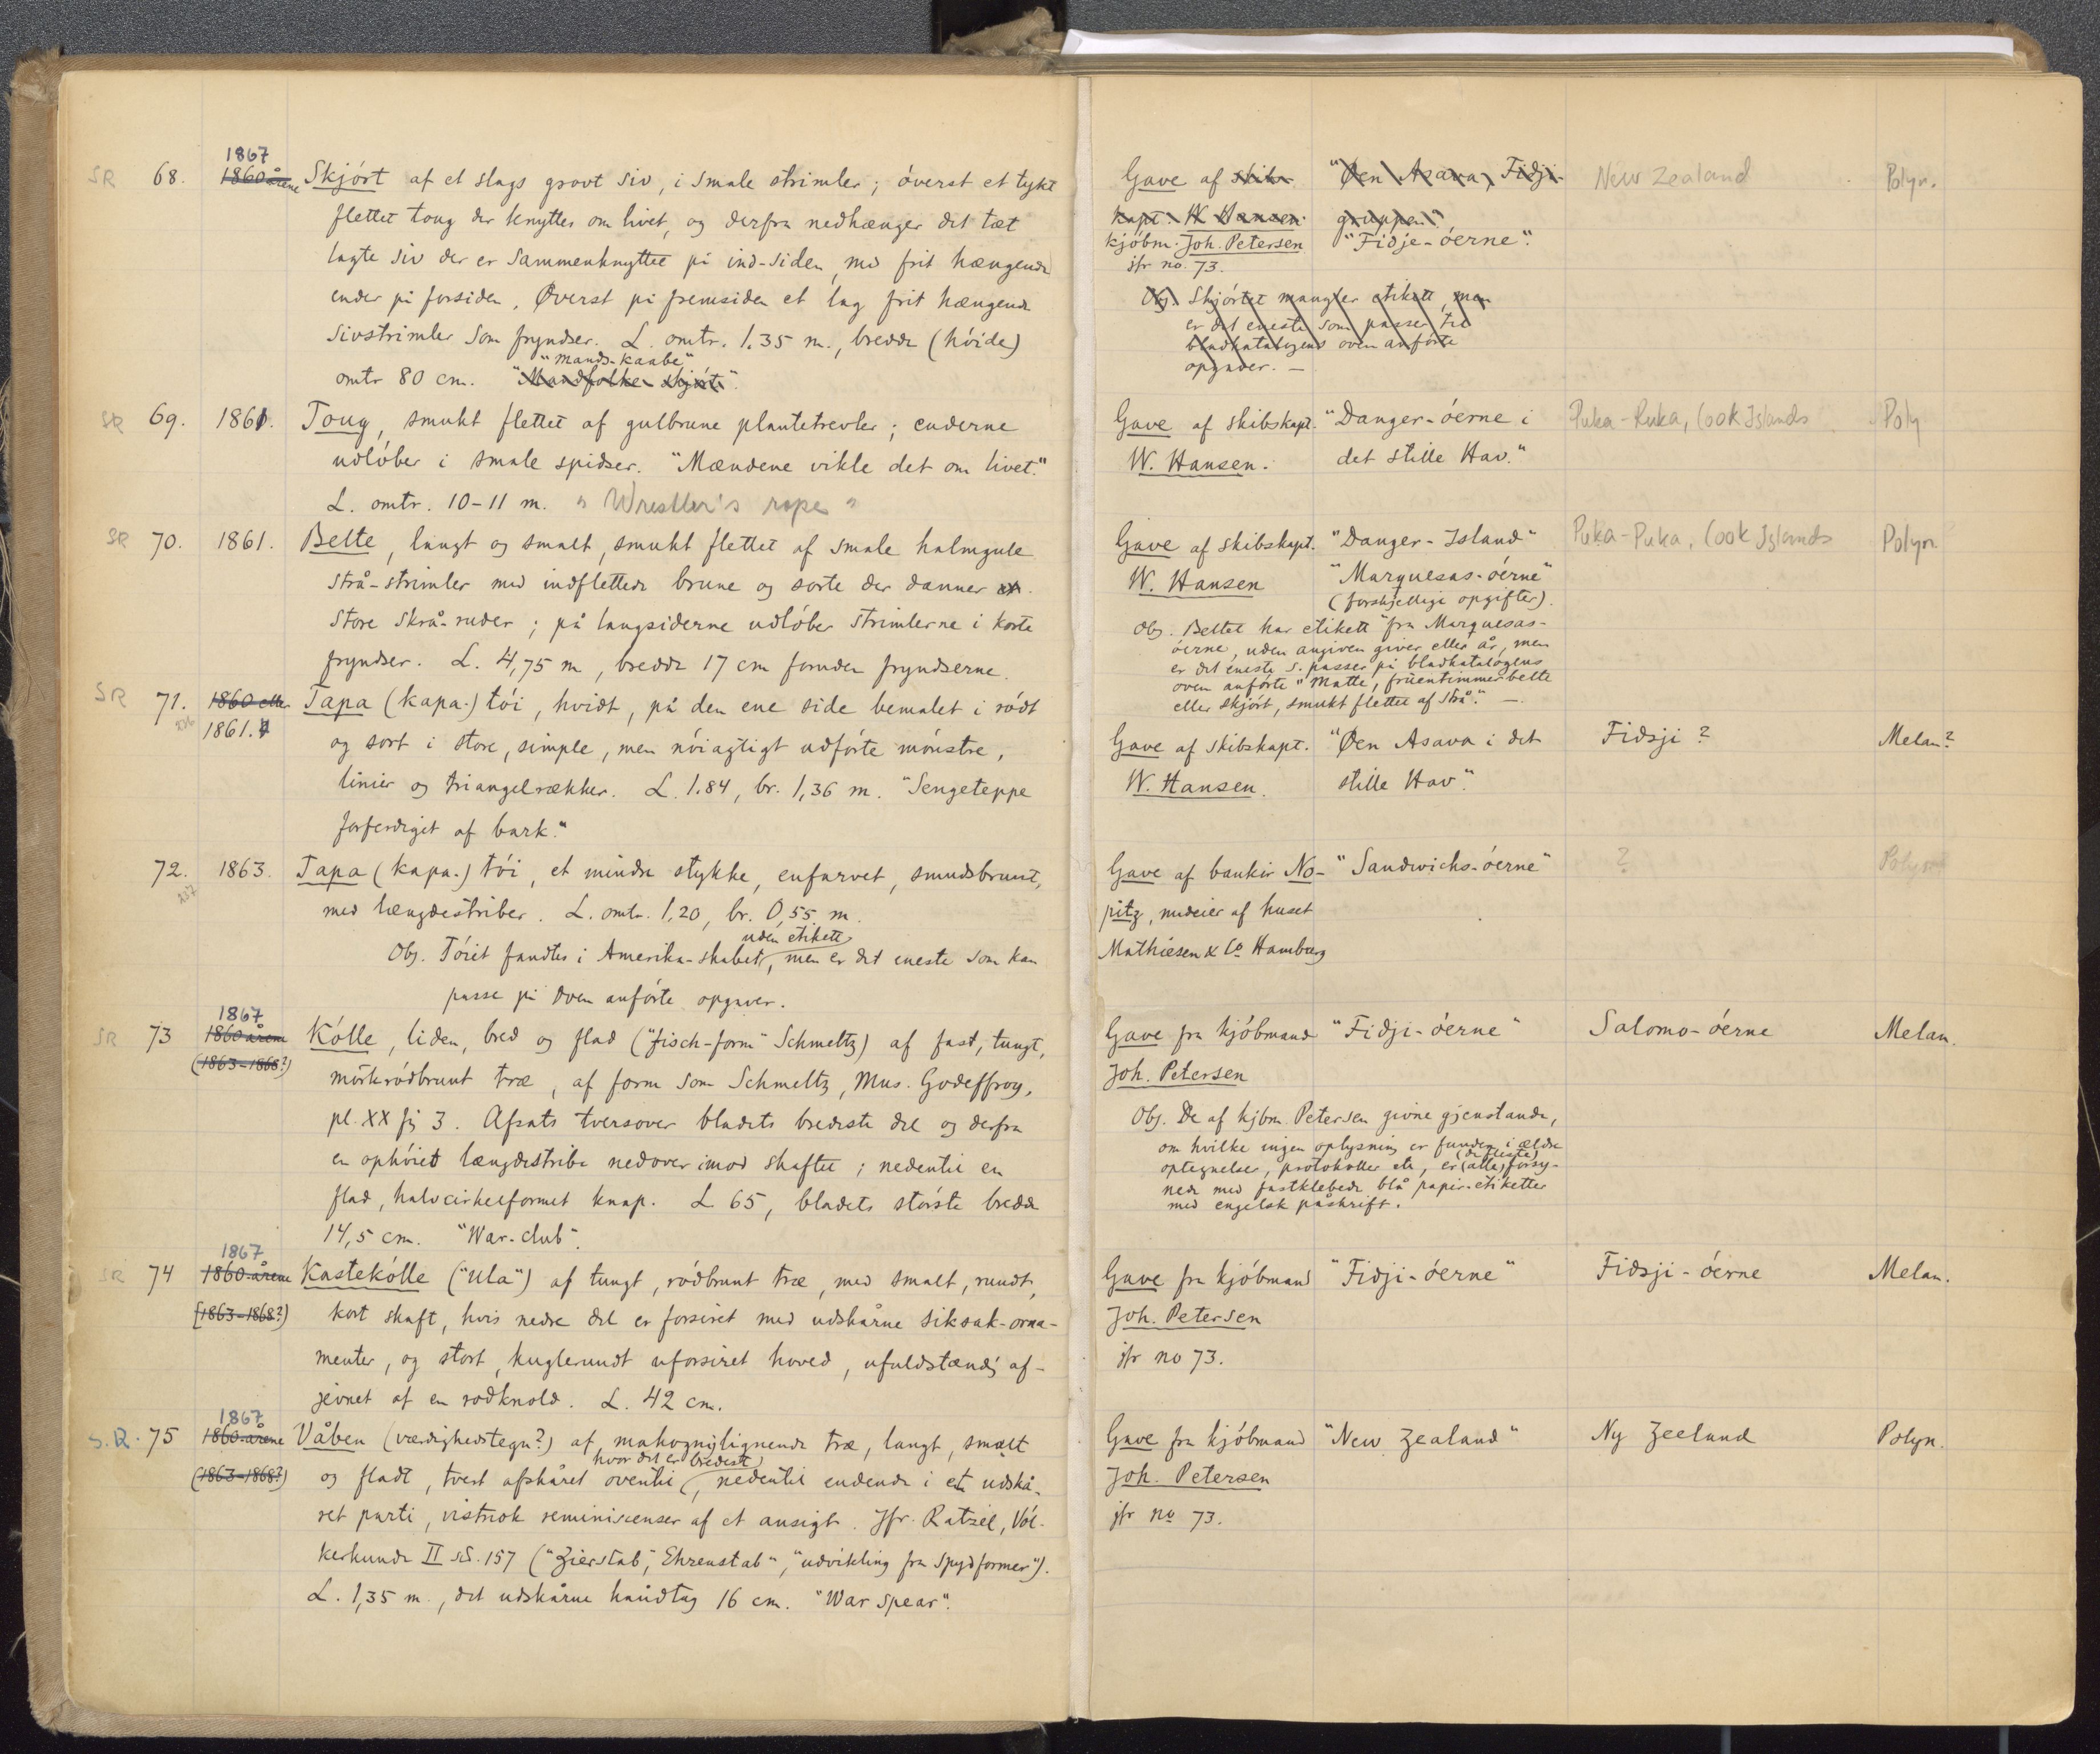 SR 68. 1867
1860årene Skjórt af et slags grovt siv, i smale strimler; óverst et tykt
flettet toug der knyttes om livet, og derfra nedhænger det tæt
lagte siv der er sammenknyttet på ind-siden, med frit hængende
ender på forsiden. Øverst på fremsiden et lag frit hængende
sivstrimler som fryndser. L. omtr. 1.35 m., bredde (hóide)
"Mands-kaabe"
omtr 80 cm. "Mandfolke skjórt".
SR 69. 1861. Toug, smukt flettet af gulbrune plantetrevler; enderne
udlóber i smale spidser. "Mændene vikle det om livet."
L. omtr. 10-11 m. "Wrestler's rope"
SR 70. 1861. Belte, langt og smalt, smukt flettet af smale halmgule
strå-strimler med indflettede brune og sorte der danner
store skrå-ruder; på langsiderne udlóber strimlerne i korte
fryndser. L. 4,75 m, bredde 17 cm foruden fryndserne.
SR 71. 1860 eller Tapa (kapa-) tói, hvidt, på den ene side bemalet i ródt
236 1861. og sort i store, simple, men nóiagtigt udfórte mónstre,
linier og triangelrækker. L. 1.84, br. 1,36 m. "Sengeteppe
forferdiget af bark."
72. 1863. Tapa (kapa-) tói, et mindre stykke, enfarvet, smudsbrunt,
237 med længdestriber. L. omtr. 1,20, br. 0,55 m.
uden etikett
Obs. Tóiet fandtes i Amerika-skabet, men er det eneste som kan
passe på oven anfórte opgaver.
SR 73 1867
1860 årene Kólle, liden, bred og flad ("fisch-form" Schmeltz) af fast, tungt,
(1863-1868?) mórkródbrunt træ, af form som Schmeltz, Mus. Godeffroy,
pl. XX fig 3. Afsats tversover bladets bredeste del og derfra
en ophóiet længdestribe nedover imod skaftet; nedentil en
flad, halvcirkelformet knap. L 65, bladets stórste bredde
14,5 cm. "War-club".
SR 74 1867
1860-årene Kastekólle ("ula") af tungt, ródbrunt træ, med smalt, rundt,
(1863-1868?) kort skaft, hvis nedre del er forsiret med udskårne siksak-orna-
menter, og stort, kuglerundt uforsiret hoved, ufuldstændig af-
jevnet af en rodknold. L. 42 cm.
S.R. 75 1867
1860-årene Våben (værdighedstegn?) af mahognylignende træ, langt, smalt
hvor det er bredest
(1863-1868?) og fladt, tvert afskåret oventil, nedentil endende i et udskå-
ret parti, vistnok reminiscenser af et ansigt. Jfr. Ratzel, Völ-
kerkunde II s. 157 ("Zierstab", Ehrenstab", "udvikling fra spydformer").
L. 1,35 m., det udskårne håndtag 16 cm. "War spear".
Gave af skibs "Øen Asava, Fidji- New Zealand Polyn.
kapt. W Hansen gruppen"
kjóbm. Joh. Petersen "Fidje-óerne".
jfr no. 73.
Obs. Skjórtet mangler etikett, men
er det eneste som passer til
bladkatalogens oven anfórte
opgaver. –
Gave af skibskapt. "Danger-óerne i Puka-Puka, Cook Islands Poly
W. Hansen. det stille Hav."
Gave af skibskapt. "Danger-Island" Puka-Puka, Cook Islands Polyn
W. Hansen "Marquesas-óerne"
(forskjellige opgifter).
Obs. Beltet har etikett fra Marquesas-
óerne, uden angiven giver eller år, men
er det eneste s. passer på bladkatalogens
oven anfórte "Matte, fruentimmerbelte
eller skjórt, smukt flettet af strå." –
Gave af skibskapt. "Øen Asava i det Fidsji? Melan?
W. Hansen. stille Hav".
Gave af bankir No- "Sandwichs-óerne" ? Polyn
pitz, medeier af huset
Mathiesen & Co Hamburg
Gave fra kjóbmand "Fidji-óerne" Salomo-óerne Melan.
Joh. Petersen
Obs. De af kjbm. Petersen givne gjenstande,
om hvilke ingen oplysning er funden i ældre
(de fleste)
optegnelser, protokoller etc, er (alle) forsy-
nede med fastklebede blå papir-etiketter
med engelsk påskrift.
Gave fra kjóbmand "Fidji-óerne" Fidsji-óerne Melan.
Joh. Petersen
jfr no 73.
Gave fra kjóbmand "New Zealand" Ny Zeeland Polyn.
Joh. Petersen
jfr no 73.